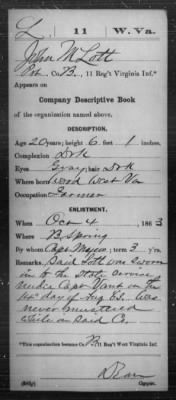 L, 11 W. Va.
John M Lott
Pvt., Co. B, 11 Reg't Virginia Inf.*
Appears on
Company Descriptive Book
of the organization named above.
DESCRIPTION.
Age 20 years; height 6 feet 1 inches.
Complexion Dark
Eyes Gray; hair Dark
Where born Wood West Va
Occupation Farmer
ENLISTMENT.
When Octr 4, 1863
Where Spring
By whom Capt Mayes; term 3 y'rs.
Remarks: Said Lott was sworn
in to the State Service
under Capt on the
day of Aug 63. Was
never mustered
while in said Co.
*This organization became Co. , 11 Reg't West Virginia Inf.
Copyist.